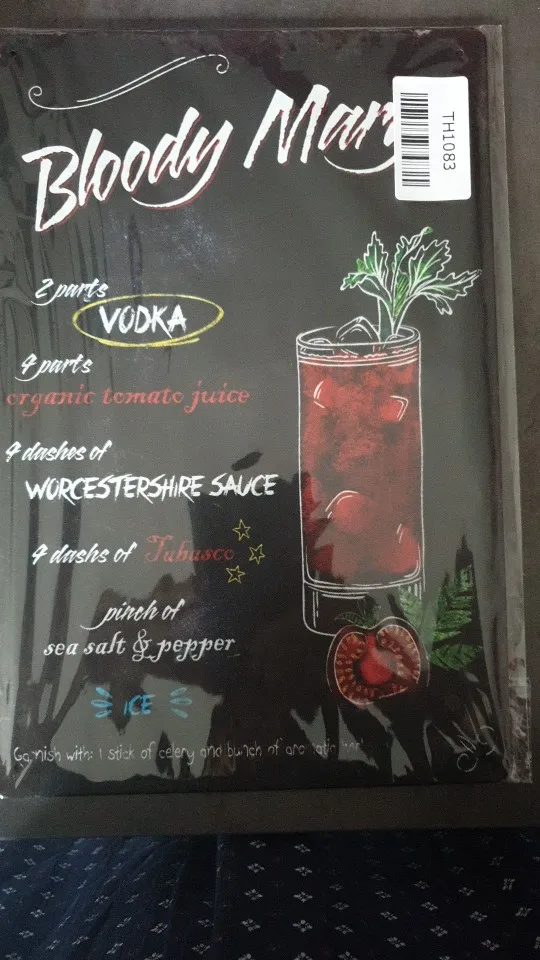 Bloody Mary
TH1083
2 parts
VODKA
4 parts
organic tomato juice
4 dashes of
WORCESTERSHIRE SAUCE
4 dashs of Tabasco
pinch of
sea salt & pepper
ICE
Garnish with: 1 stick of celery and bunch of aromatic